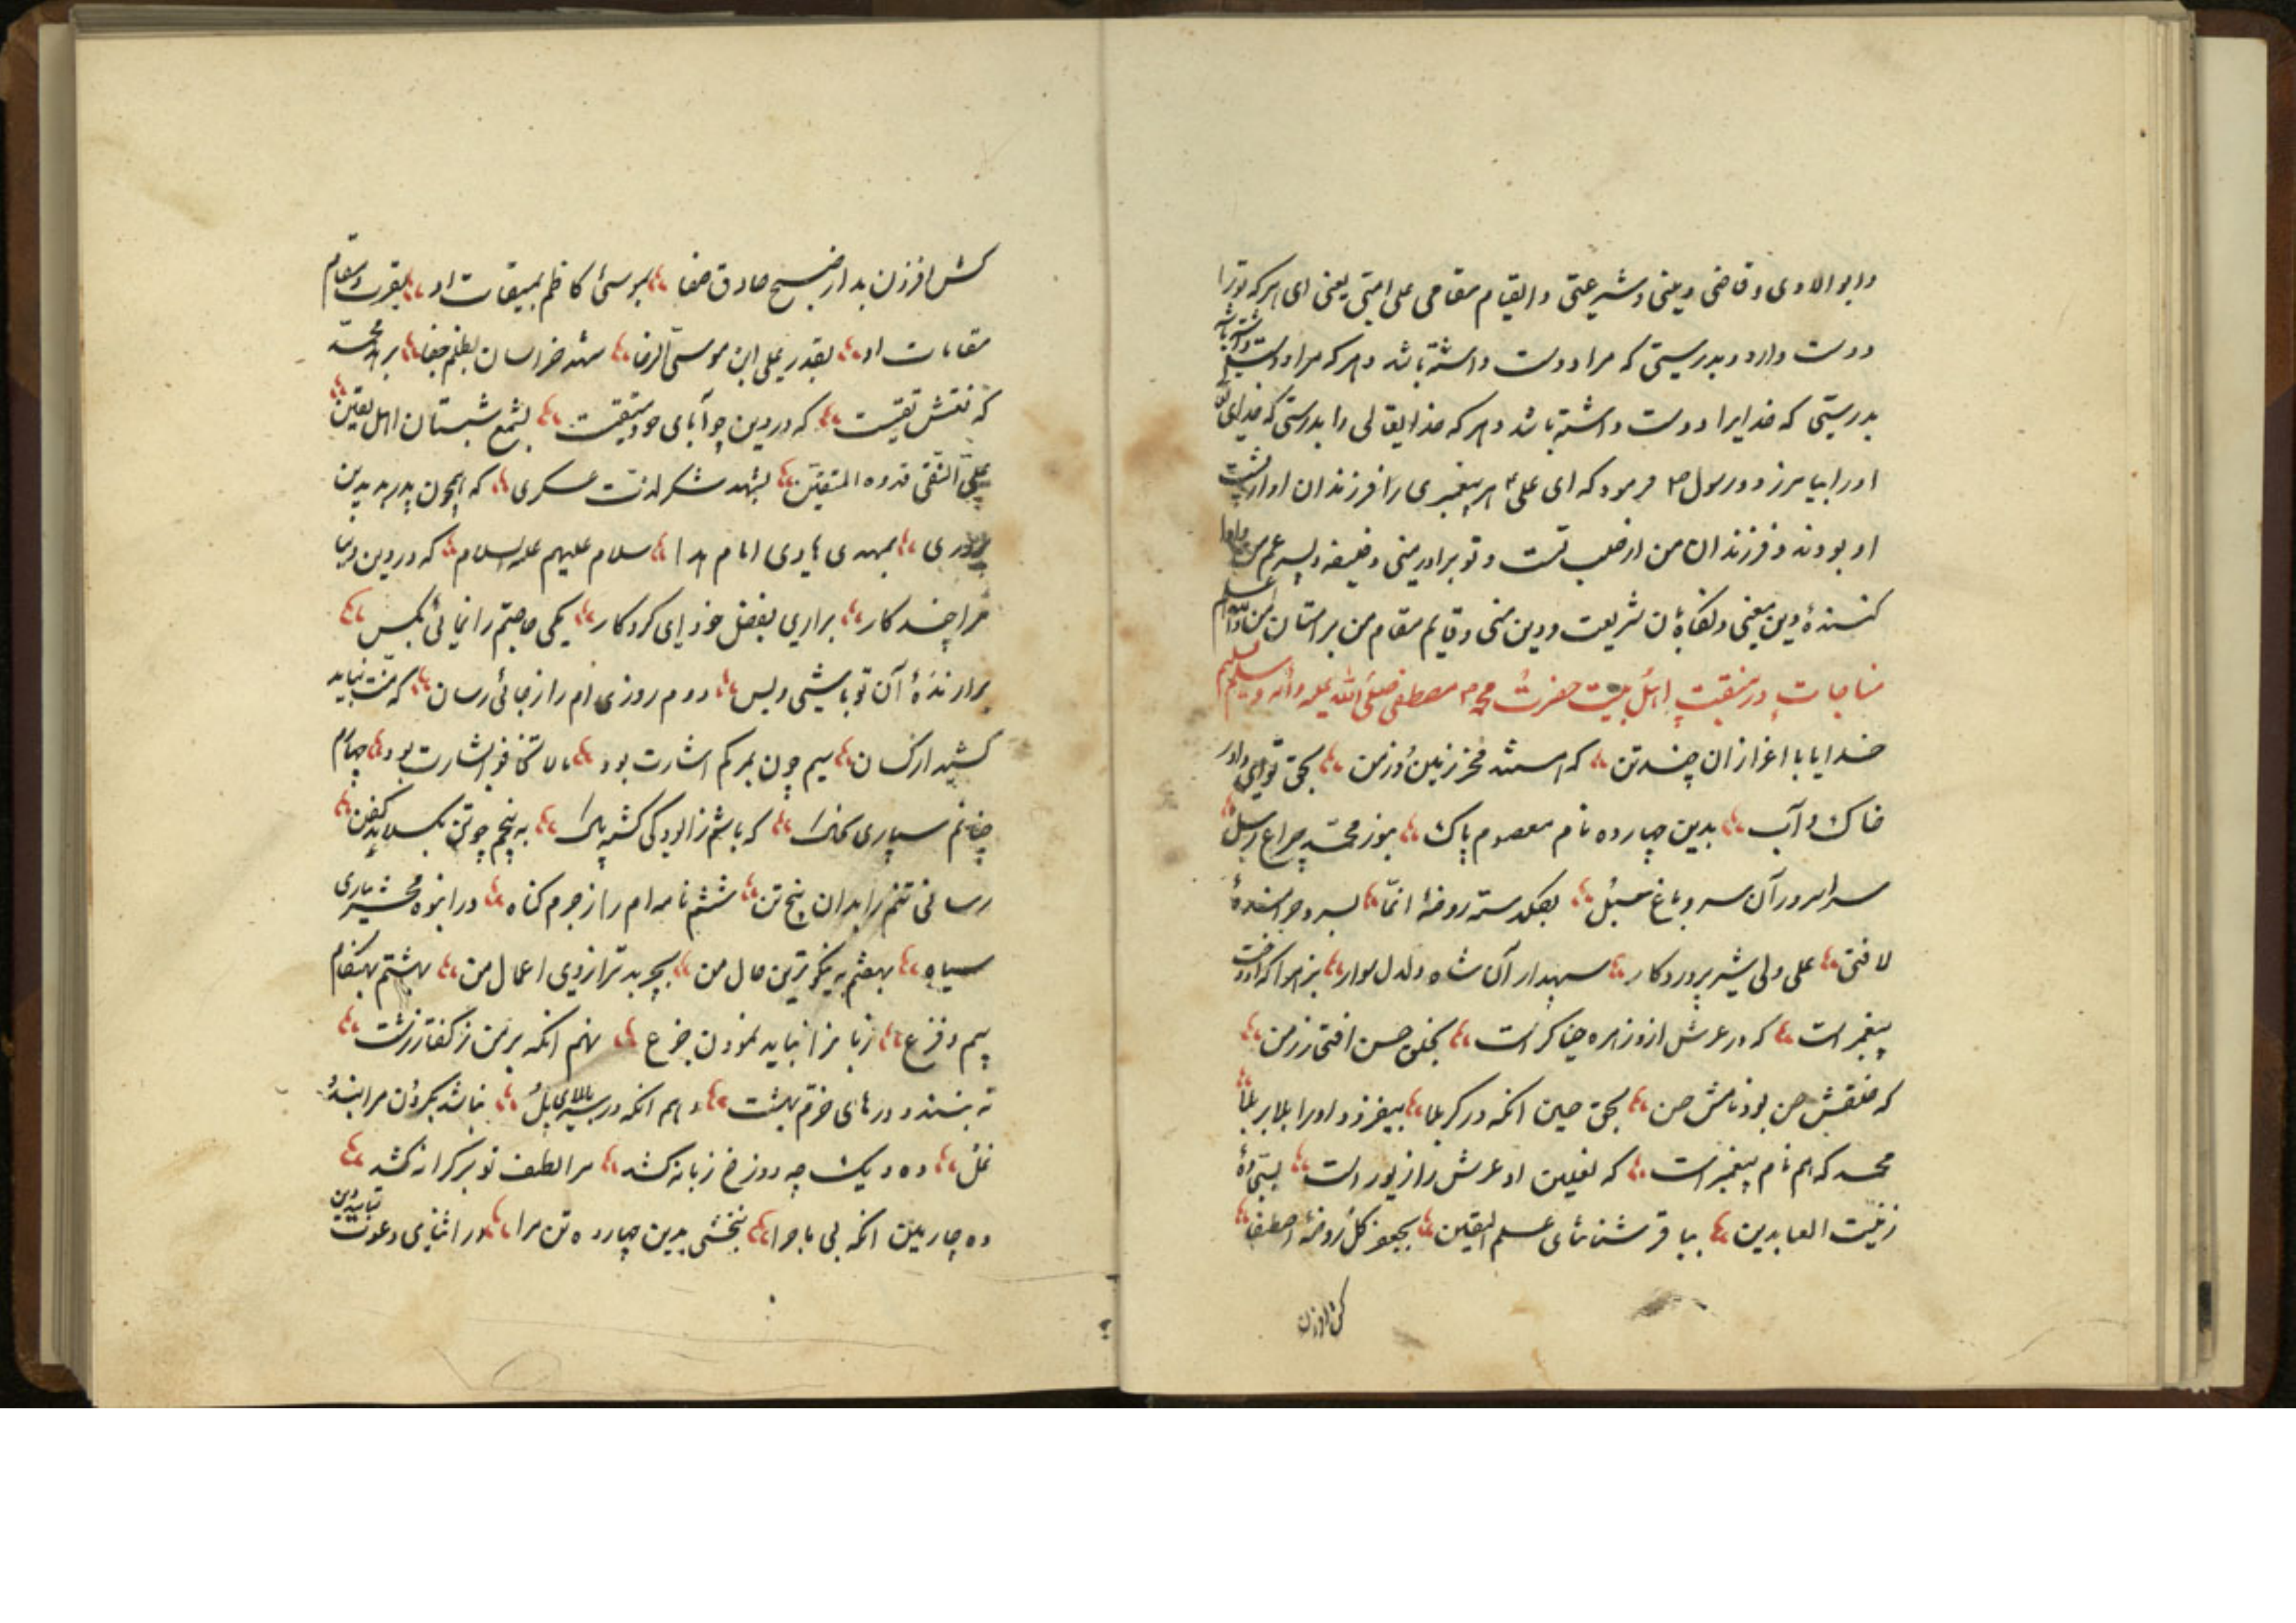 وابو الاودی وقاضی دینی وشریعتی والقیام مقامی علی امتی یعنی ای هر که تو را
دوست دارد و بدرستی که مرا دوست داشته باشد و هر که مرا دوست داشته باشد
بدرستی که خدایرا دوست داشته باشد و هر که خدایتعالی را بدرستی که خدای
اورا بیامرزد و رسول ص فرمود که ای علی هر پیغمبری را فرزندان او از پشت
او بودند و فرزندان من از صلب تست و تو برادر منی و خلیفه و پسر عم من
کنندهٔ دین منی و شریعت و دین منی و قایم مقام من بر امتان من
مناجات در منقبت اهل بیت حضرت محمد مصطفی صلی الله علیه وآله وسلم
خدایا با اعزاز ان چند تن که هستند فخر زمین و زمن بحق تو ای داور
خاک و آب بدین چهارده نام معصوم پاک بنور محمد چراغ رسل
سراسرور آن سرو باغ سبل بگلدسته روضهٔ انما بسرو خرامندهٔ
لا فتی علی ولی شیر پروردگار سپهدار آن شاه دلدل سوار بزهرا که او دخت
پیغمبر است که در عرش ازو زهره خنیاگر است بخلق حسن افتخار زمن
که خلقش حسن بود نامش حسن بحق حسین انکه در کربلا بیفزود اورا بلا بر بلا
محمد که هم نام پیغمبر است که نعلین او عرش را زیور است
زینت العابدین بباقر شناسای علم الیقین بجعفر گل روضهٔ اصطفا
کش افزرن
کش افزرن بد از صبح صادق صفا بموسئ کاظم بمیقات او بقرب و مقام
مقامات او بقدر علی ابن موسی الرضا شهد خراسان بظلم جفا بر محمد
که نقش تقیست که در دین چو آبای خود متقیست بشمع شبستان اهل یقین
علی النقی قدوه المتقین بشهد شکر لذت عسکری که همچون پدر بد بدین
پروری بمهدی هادی امام هدا سلام علیهم علیه السلام که در دین و دنیا
مرا چند کار براری بفضل خود ای کردکار یکی حاجتم را نمائی بکس
برارندهٔ آن تو باشی و بس دوم روزی ام را ز جائی رسان که منت نباید
کشید از کسان سیم چون بمرکم اشارت بود لا تخافو البشارت بود چهارم
چنانم سپاری بخاک که باشم ز الودکی کشته پاک به پنجم چو تن بکسلاند کفن
رسانی تنم را بدان پنج تن ششم نامه ام را ز جرم کناه در انبوه محشر نیاری
سیاه بهفتم به نیکو ترین حال من بچربد ترازوی اعمال من بهشتم بهنکام
بیم و فزع زبانرا نباید نمودن جزع نهم انکه بر من ز کفتار زشت
نه بندند درهای خرم بهشت دهم انکه در سربالای پل نباشد بکردن مرا بند
غل ده و یک چه دوزخ زبانه کشد مرا لطف تو بر کرانه کشد
ده چارمین انکه بی ماجرا ببخشی بدین چهارده تن مرا در اثنای دعوت